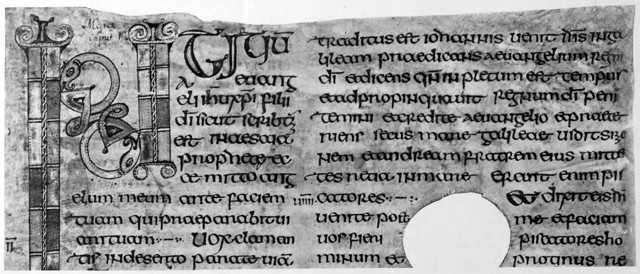 INI
evang
elii ihu xpi filii
di sicut scribt
est in aesaia
propheta ec
ce mitto ang
elum meum ante faciem
tuam qui praeparabit ui
am tuam Uox claman
tis in deserto parate uiā
traditus est iohannis uenit in ga
lileam praedicans aeuangelium regni
di et dicens qm inpletum est tempus
et adpropinquauit regnum di peni
temini et credite aeuangelio et praete
riens secus mare galileae uidit simo
nem et andream fratrem eius mitt
tes retia in mare Erant enim pis
catores Et dixit eis
uenite post me et faciam
uos fieri piscatores ho
minum et protinus re